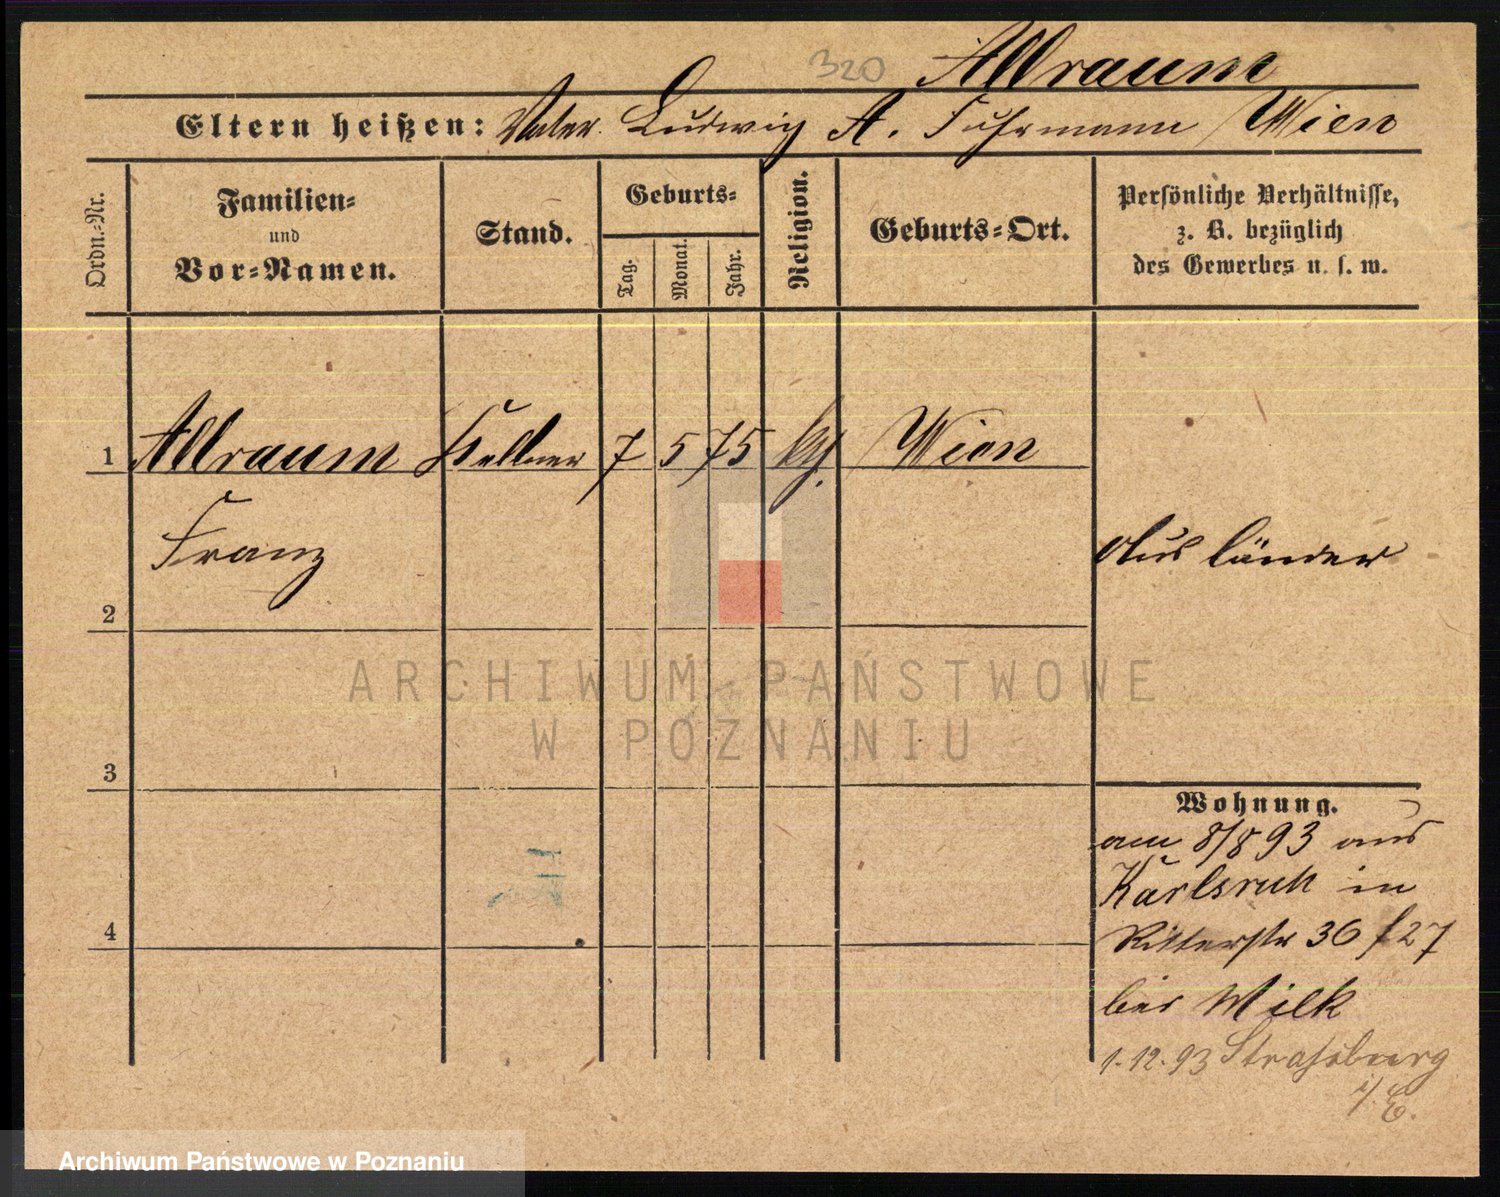 320 Allraum
Eltern heißen: Vater Ludwig A. Fuhrmann Wien
Ordn.-Nr.
Familien-
und
Vor-Namen.
Stand.
Geburts-
Tag.
Monat.
Jahr.
Religion.
Geburts-Ort.
Persönliche Verhältnisse,
z. B. bezüglich
des Gewerbes u. s. w.
1 Allraum Kellner 7 5 75 kth. Wien
Franz
Ausländer
2
3
4
ARCHIWUM PAŃSTWOWE
W POZNANIU
Wohnung.
am 8/8 93 aus
Karlsruh in
Ritterstr 36 f 27
bei Wilk
1.12.93 Strassburg
i/E.
Archiwum Państwowe w Poznaniu